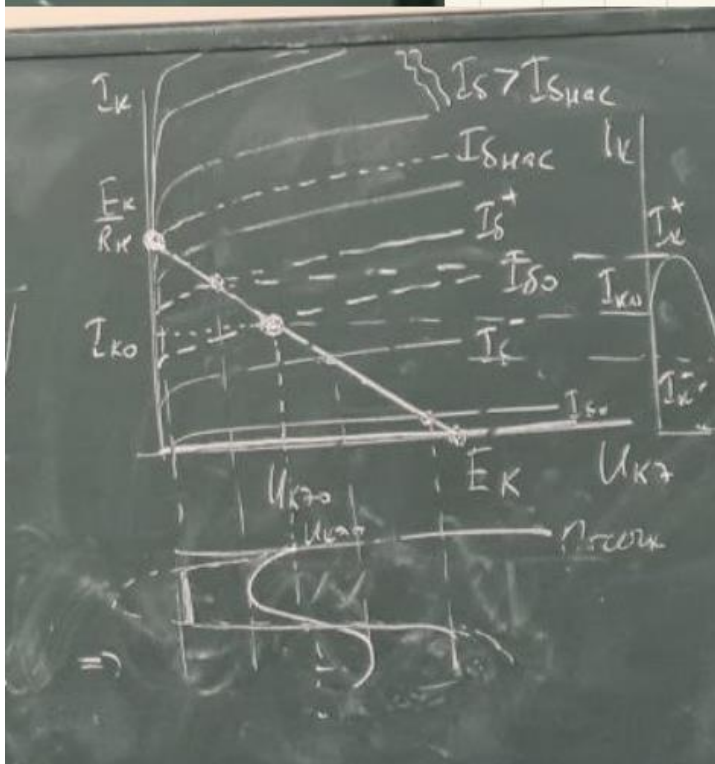 Iк
Iб > Iбнас
Iбнас
Iк
Eк
Rк
Iб⁺
Iк⁺
Iб0
Iк0
Iк0
Iб⁻
Iк⁻
Eк
Uкэ
Uкэ0
=>